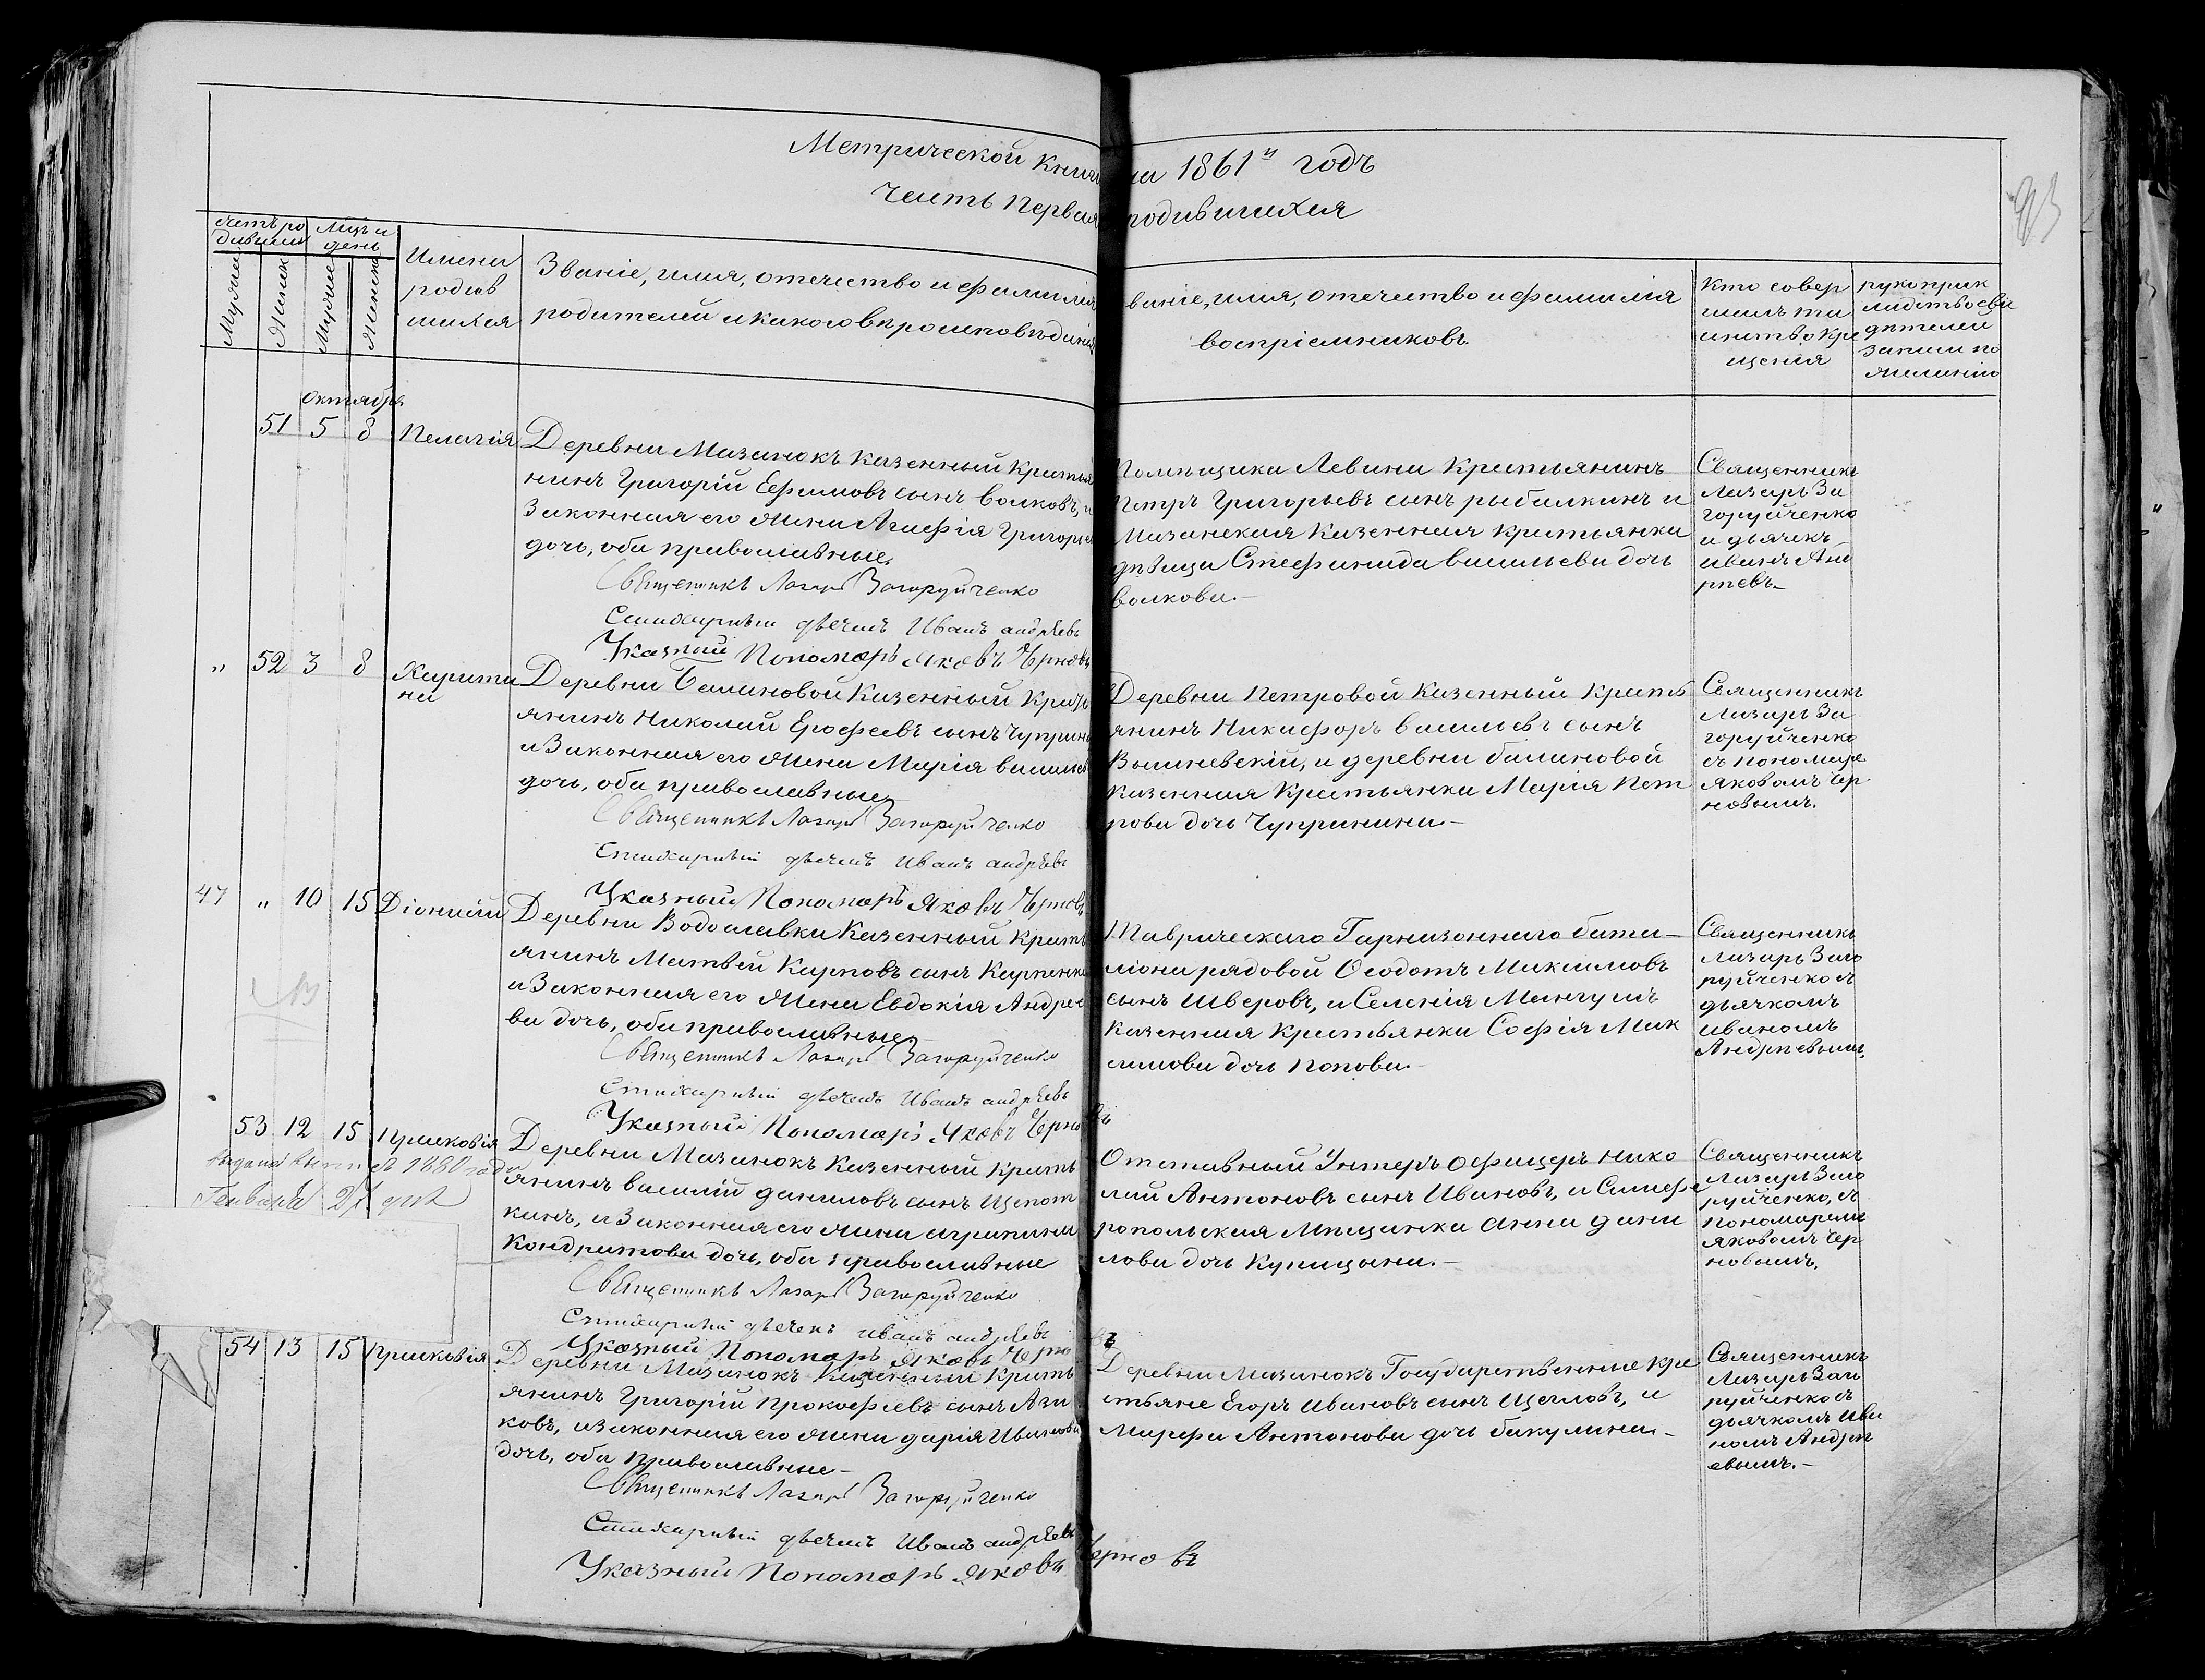 Метрической книги на 1861й годъ
Часть первая о родившихся
Счетъ родившихся
Мцъ и день
Мужие
Женск
Мужие
Женска
Имена
родив
шихся
Званіе, имя, отечество и фамилія
родителей и какого вѣроисповѣданія
Званіе, имя, отечество и фамилія
воспріемниковъ.
Кто совер
шилъ та
инство Кре
щенія
рукоприк
ладство сви
дѣтелей
записи по
желанію
Октября
51 5 8 Пелагія
Деревни Мазанокъ Казенный Крестья
нинъ Григорій Ефимовъ сынъ Волковъ, и
Законная его жена Агафія Григорьев
дочь, оба православные.
Священникъ Лазарь Загоруйченко
Стихарный дьячекъ Иванъ андрѣевъ
Указный Пономарь Яковъ Черновъ
Помѣщика Левини Крестьянинъ
Петръ Григорьевъ сынъ рыбалкинъ и
Мазанская Казенная крестьянка
дѣвица Стефанида васильева дочь
волкова.–
Священникъ
Лазарь За
горуйченко
и дьячекъ
иванъ Анд
рѣевъ.–
" 52 3 8 Харити
на
Деревни Балановой Казенный Кресть
янинъ Николай Ерофеевъ сынъ Чупринъ
и Законная его жена Марія васильев
дочь, оба православные
Священникъ Лазарь Загоруйченко
Стихарный дьячекъ Иванъ андрѣевъ
Указный Пономарь Яковъ Черновъ
Деревни Петровой Казенный Кресть
янинъ Никифоръ васильевъ сынъ
Вышневскій, и деревни балановой
казенная Крестьянка Марія Пет
рова дочь Чупринина.–
Священникъ
Лазарь За
горуйченко
съ пономаре
Яковомъ Чер
новымъ.
47 " 10 15 Діонисій
Деревни Водославки Казенный Кресть
янинъ Матвей Карповъ сынъ Карпенко
и Законная его жена Евдокія Андрее
ва дочь, оба православные
Священникъ Лазарь Загоруйченко
Стихарный дьячекъ Иванъ андрѣевъ
Указный Пономарь Яковъ Черновъ
Таврическаго Гарнизоннаго бата–
ліона рядовой Ѳеодотъ Максимовъ
сынъ Шверовъ, и Селенія Мангушъ
Казенная Крестьянка Софія Мак
симова дочь Попова.–
Священникъ
Лазарь Заго
руйченко съ
дьячкомъ
иваномъ
Андрѣевымъ.
53 12 15 Прасковія
1880 года
Генваря 21 дня
Деревни Мазанокъ Казенный Кресть
янинъ василій даниловъ сынъ Щепот
кинъ, и Законная его жена агрипина
Кондратова дочь, оба православные
Священникъ Лазарь Загоруйченко
Стихарный дьячекъ иванъ андрѣевъ
Указный Пономарь Яковъ Черновъ
Отставный Унтеръ офицеръ Нико
лай Антоновъ сынъ Ивановъ, и Симфе
ропольская Мѣщанка Анна дани
лова дочь Купицына.–
Священникъ
Лазарь Заго
руйченко, съ
пономаремъ
яковомъ Чер
новымъ.
54 13 15 Прасковія
Деревни Мазанокъ Казенный Кресть
янинъ Григорій Прокофіевъ сынъ Ази
ковъ, и законная его жена дарія Иванова
дочь, оба Православные–
Священникъ Лазарь Загоруйченко
Стихарный дьячекъ Иванъ андрѣевъ
Указный Пономарь Яковъ Черновъ
Деревни Мазанокъ Государственные кре
стьяне Егоръ ивановъ сынъ Щегловъ, и
Марфа Антонова дочь бакулина.–
Священникъ
Лазарь Заго
руйченко съ
дьячкомъ ива
номъ Андрѣ
евымъ.–